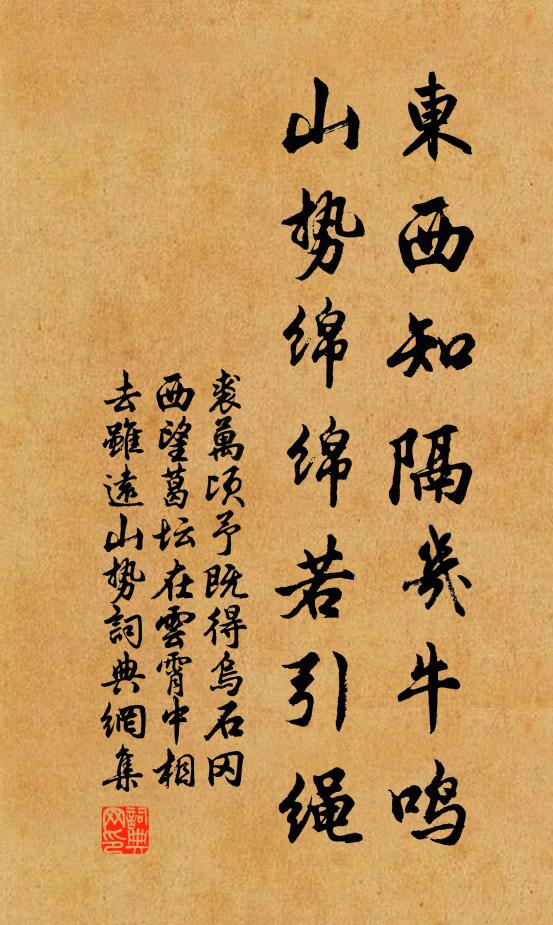 東西知隔幾牛鳴
山势绵绵若引绳
裘萬頃予既得烏石冈
西望葛坛在雲霄中相
去雖遠山势詞典網集
詞典网印